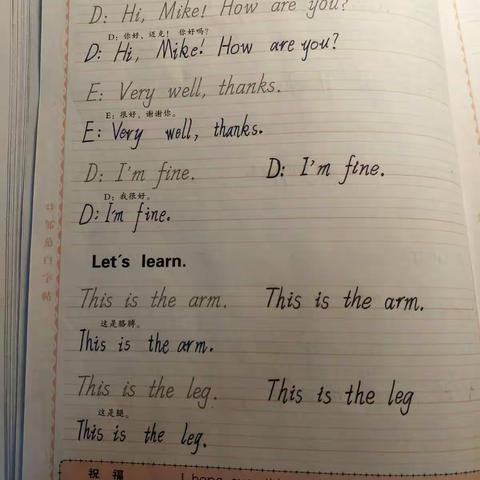 D: Hi, Mike! How are you?
D: 你好，迈克！你好吗？
D: Hi, Mike! How are you?
E: Very well, thanks.
E: 很好，谢谢你。
E: Very well, thanks.
D: I'm fine. D: I'm fine.
D: 我很好。
D: I'm fine.
Let's learn.
This is the arm. This is the arm.
这是胳膊。
This is the arm.
This is the leg. This is the leg
这是腿。
This is the leg.
祝 福
I hope